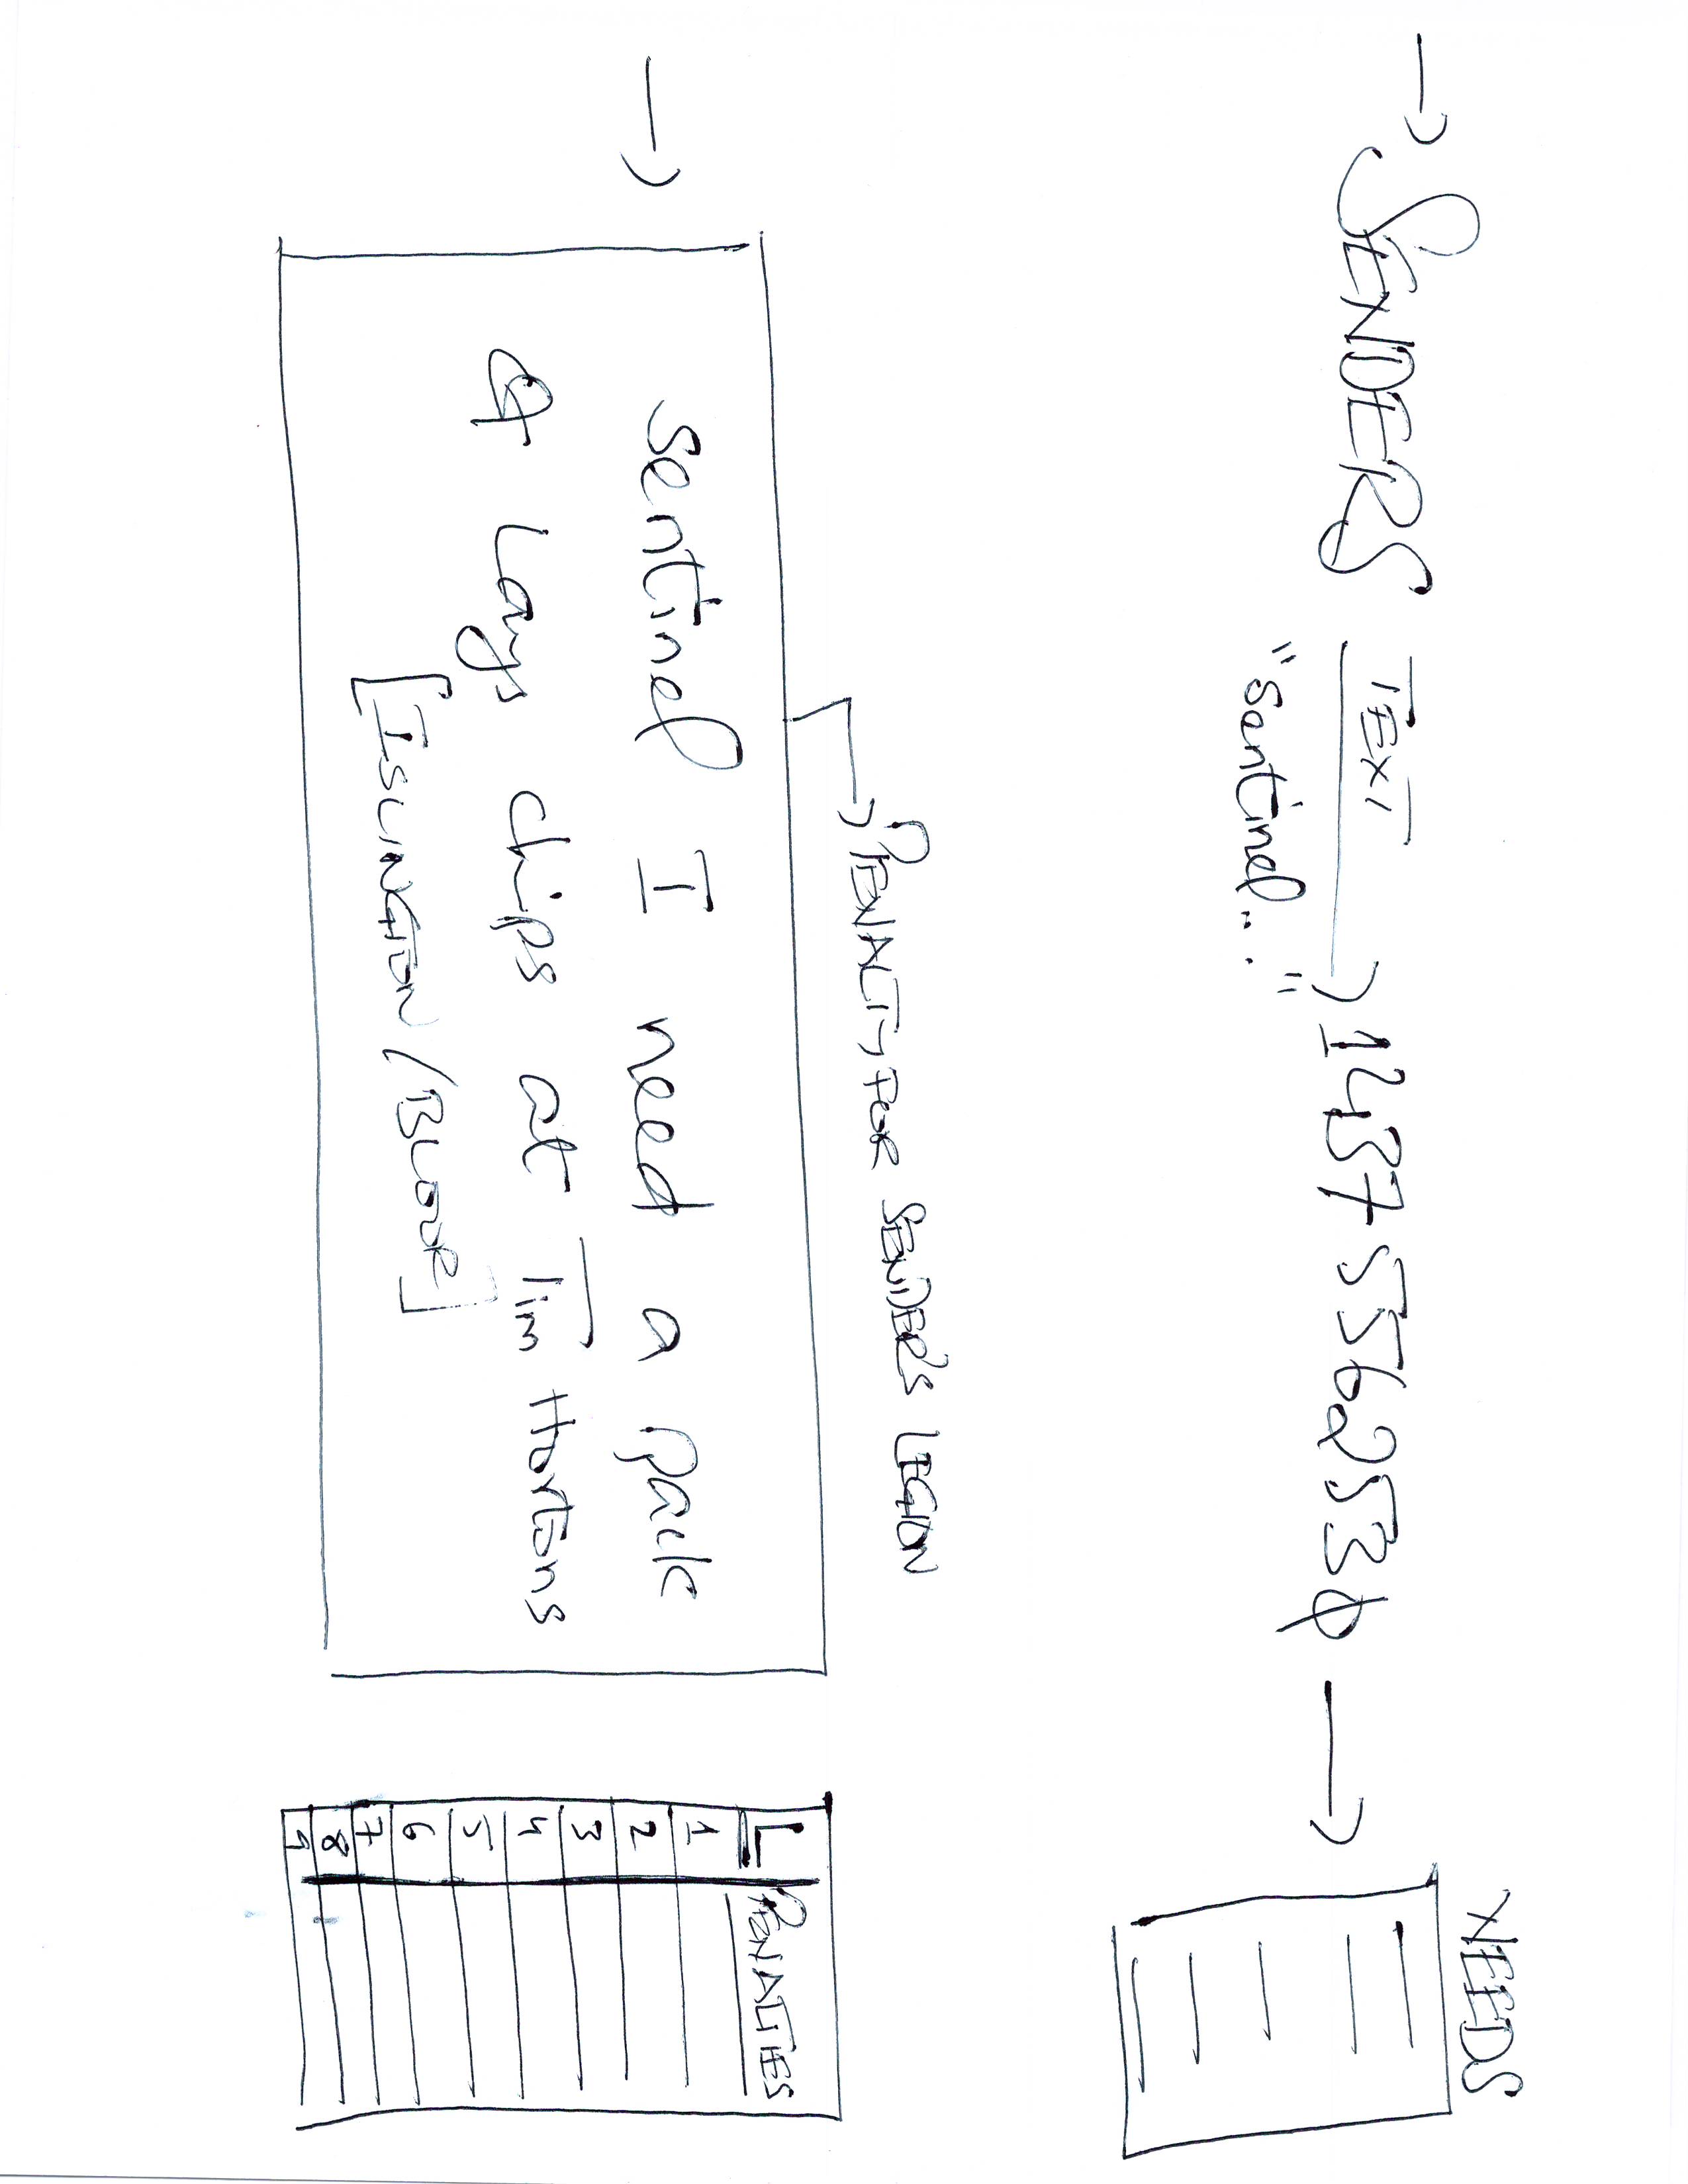 NEEDS
→ SENDERS TEXT → 1437 556 2530 →
"Sentinel..."
→ PENALTY FOR SENDER'S LEGION
→ Sentinel I need a pack
of Lays chips at Tim Hortons
[ISLINGTON/BLOOR]
L PENALTIES
1
2
3
4
5
6
7
8
9